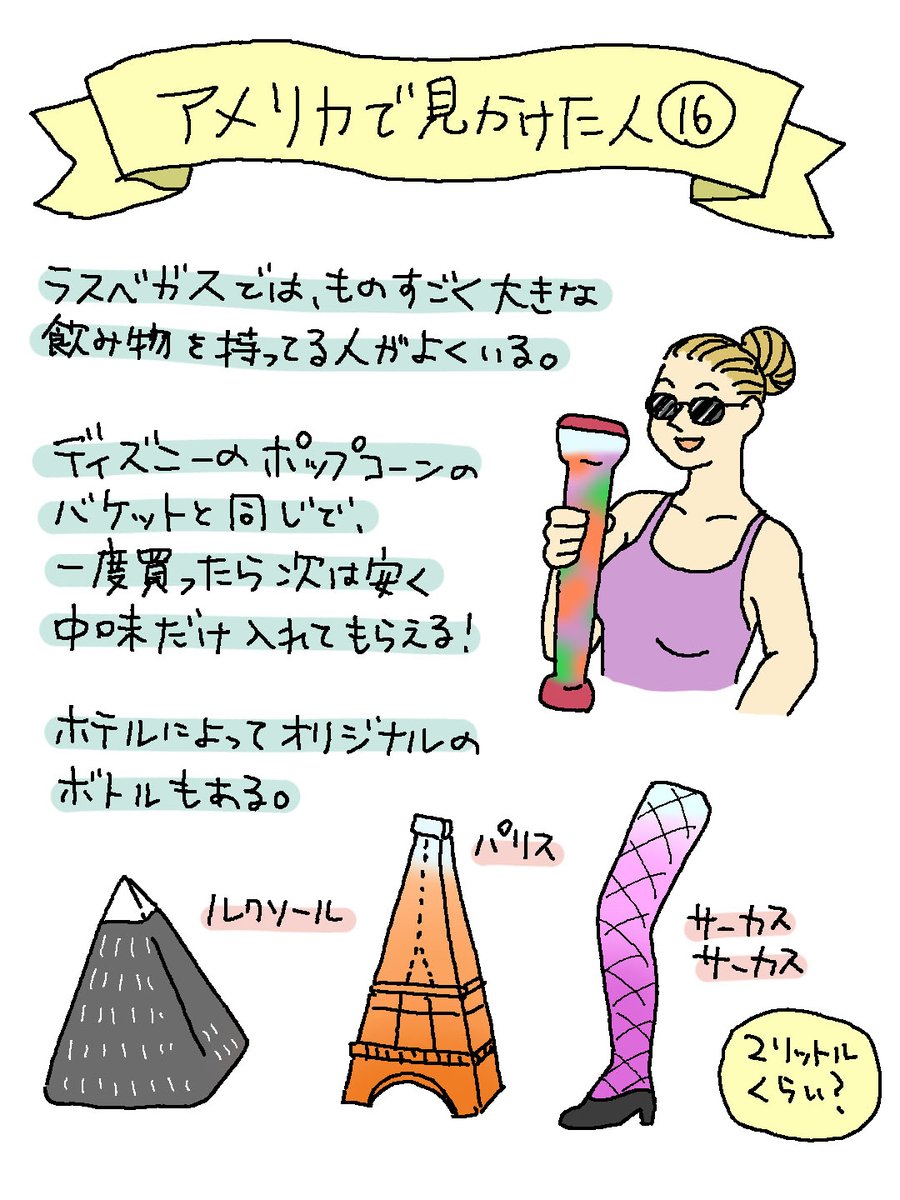 アメリカで見かけた人⑯
ラスベガスでは、ものすごく大きな
飲み物を持ってる人がよくいる。
ディズニーのポップコーンの
バケットと同じで、
一度買ったら次は安く
中味だけ入れてもらえる!
ホテルによってオリジナルの
ボトルもある。
ルクソール
パリス
サーカス
サーカス
2リットル
くらい?